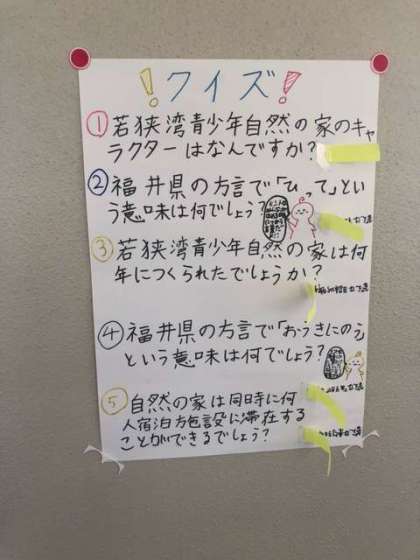 ！クイズ！
① 若狭湾青少年自然の家のキャ
ラクターはなんですか？
② 福井県の方言で「ひって」とい
う意味は何でしょう？
③ 若狭湾青少年自然の家は何
年につくられたでしょうか？
④ 福井県の方言で「おうきにのぅ」
という意味は何でしょう？
⑤ 自然の家は同時に何
人宿泊施設に滞在する
ことができるでしょう？